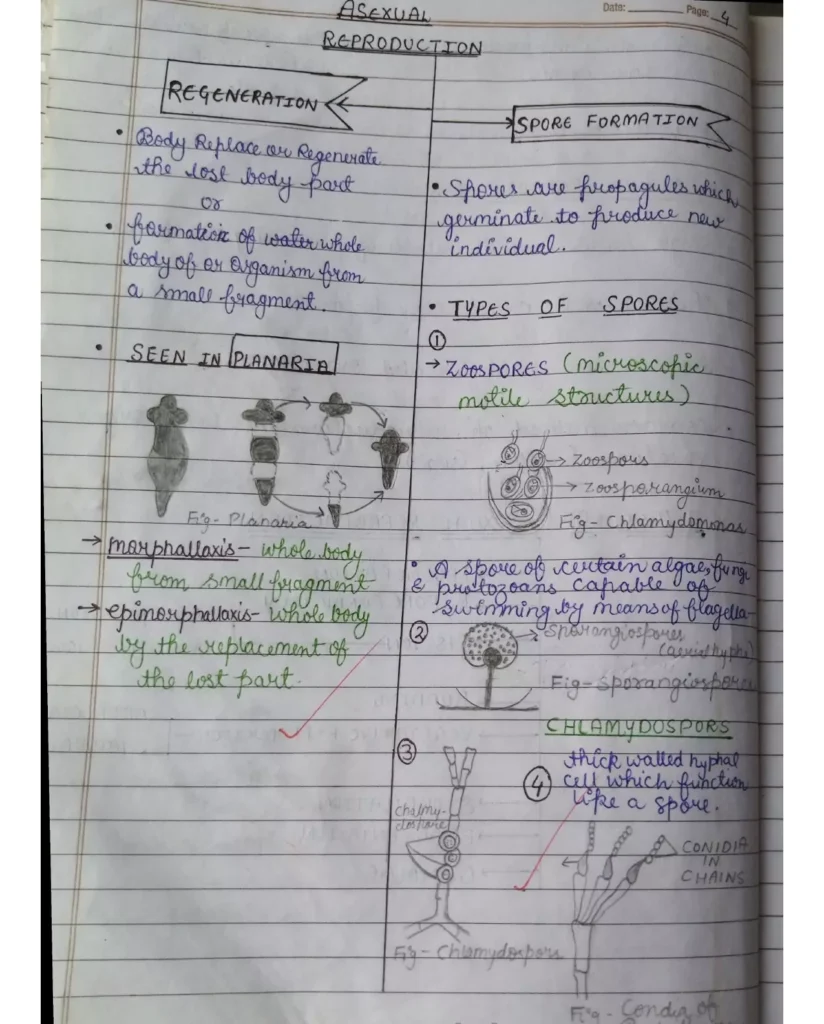 Date: Page: 4
ASEXUAL
REPRODUCTION
REGENERATION
• Body Replace or Regenerate
the lost body part
or
• formation of water whole
body of or organism from
a small fragment.
• SEEN IN PLANARIA
Fig- Planaria
→ morphallaxis- whole body
from small fragment
→ epimorphallaxis- whole body
by the replacement of
the lost part.
SPORE FORMATION
• Spores are propagules which
germinate to produce new
individual.
• TYPES OF SPORES
①
→ ZOOSPORES (microscopic
motile structures)
→ Zoospors
→ Zoosporangium
Fig- Chlamydomonas
• A spore of certain algae, fungi
& protozoans capable of
swimming by means of flagella-
②
Sporangiospores
(aerial hyphe)
Fig- Sporangiospores
CHLAMYDOSPORS
③
thick walled hyphal
④ cell which function
like a spore.
chalmy-
dospore
CONIDIA
IN
CHAINS
Fig- Chlamydospore
Fig- Condia of